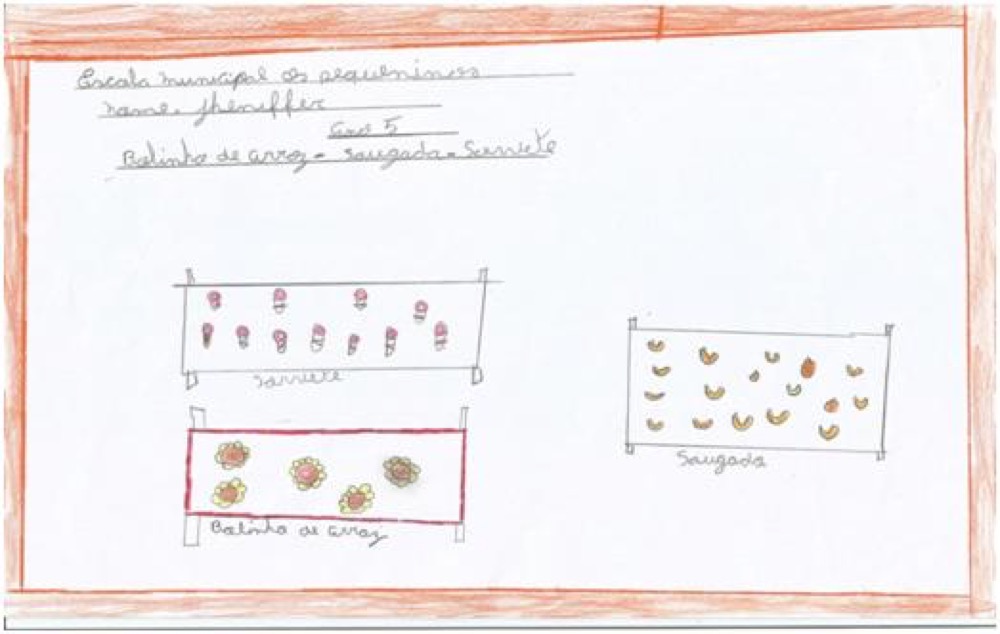 Escola municipal os pequeninos
nome. Jheniffer
ano 5
Bolinho de arroz - saugada - Sorvete
Sorvete
Saugada
Bolinho de arroz